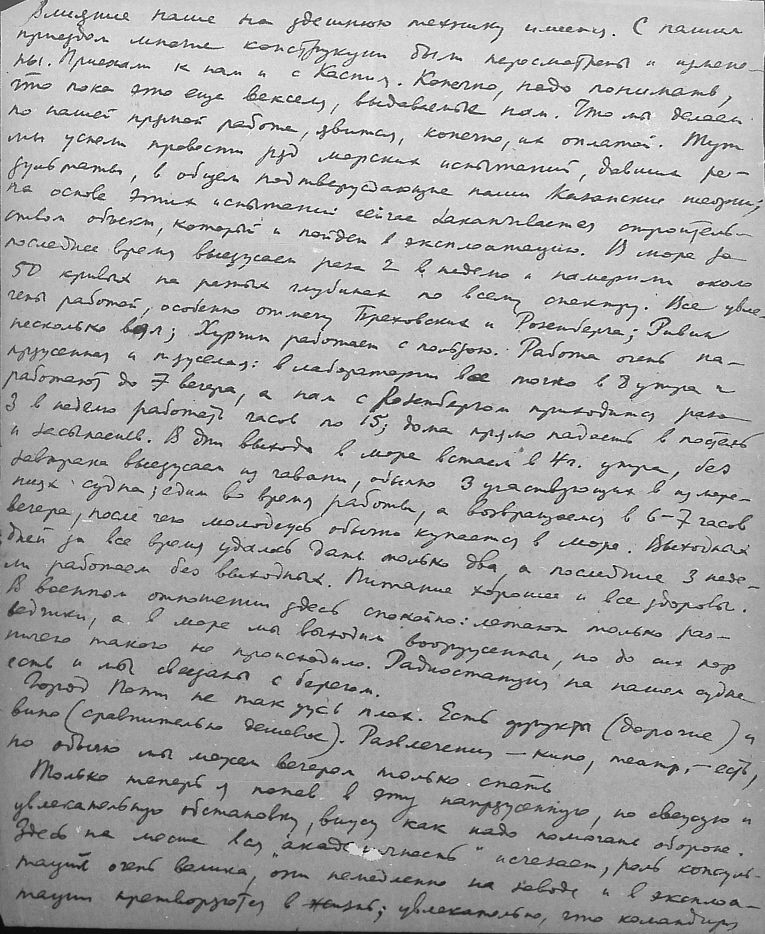 Влияние наше на здешнюю технику имеется. С нашим
приездом многие конструкции были пересмотрены и измене-
ны. Приехали к нам и с Каспия. Конечно, надо понимать,
что пока это еще векселя, выдаваемые нам. Что мы делаем
по нашей прямой работе, явится, конечно, их оплатой. Тут
мы успели провести ряд морских испытаний, давших ре-
зультаты, в общем подтверждающие наши Казанские теории;
на основе этих испытаний сейчас заканчивается строитель-
ством объект, который и пойдет в эксплоатацию. В море за
последнее время выезжаем раза 2 в неделю и намерили около
50 кривых на разных глубинах по всему спектру. Все увле-
чены работой, особенно отмечу Бреховских и Розенберга; Ривин
несколько вял; Хургин работает с пользою. Работа очень на-
пряженная и тяжелая: в лаборатории все точно в 8 утра и
работают до 7 вечера, а нам с Розенбергом приходится раза
3 в неделю работать часов по 15; дома прямо падаешь в постель
и засыпаешь. В дни выхода в море встаем в 4 г. утра, без
завтрака выезжаем из гавани, обычно 3 участвующих в измере-
ниях судна; едим во время работы, а возвращаемся в 6-7 часов
вечера, после чего молодежь обычно купается в море. Выходных
дней за все время удалось дать только два, а последние 3 неде-
ли работаем без выходных. Питание хорошее и все здоровы.
В военном отношении здесь спокойно: летают только раз-
ведчики, а в море мы выходим вооруженными, но до сих пор
ничего такого не происходило. Радиостанция на нашем судне
есть и мы связаны с берегом.
Город Поти не так уж плох. Есть фрукты (дорогие) и
вино (сравнительно дешевое). Развлечения - кино, театр, - есть,
но обычно мы можем вечером только спать
Только теперь я попав в эту напряженную, но свежую и
увлекательную обстановку, вижу как надо помогать обороне.
Здесь на месте вся "академичность" исчезает, роль консуль-
таций очень велика, они немедленно на заводе и в эксплоа-
тации претворяются в жизнь; увлекательно, что командиры